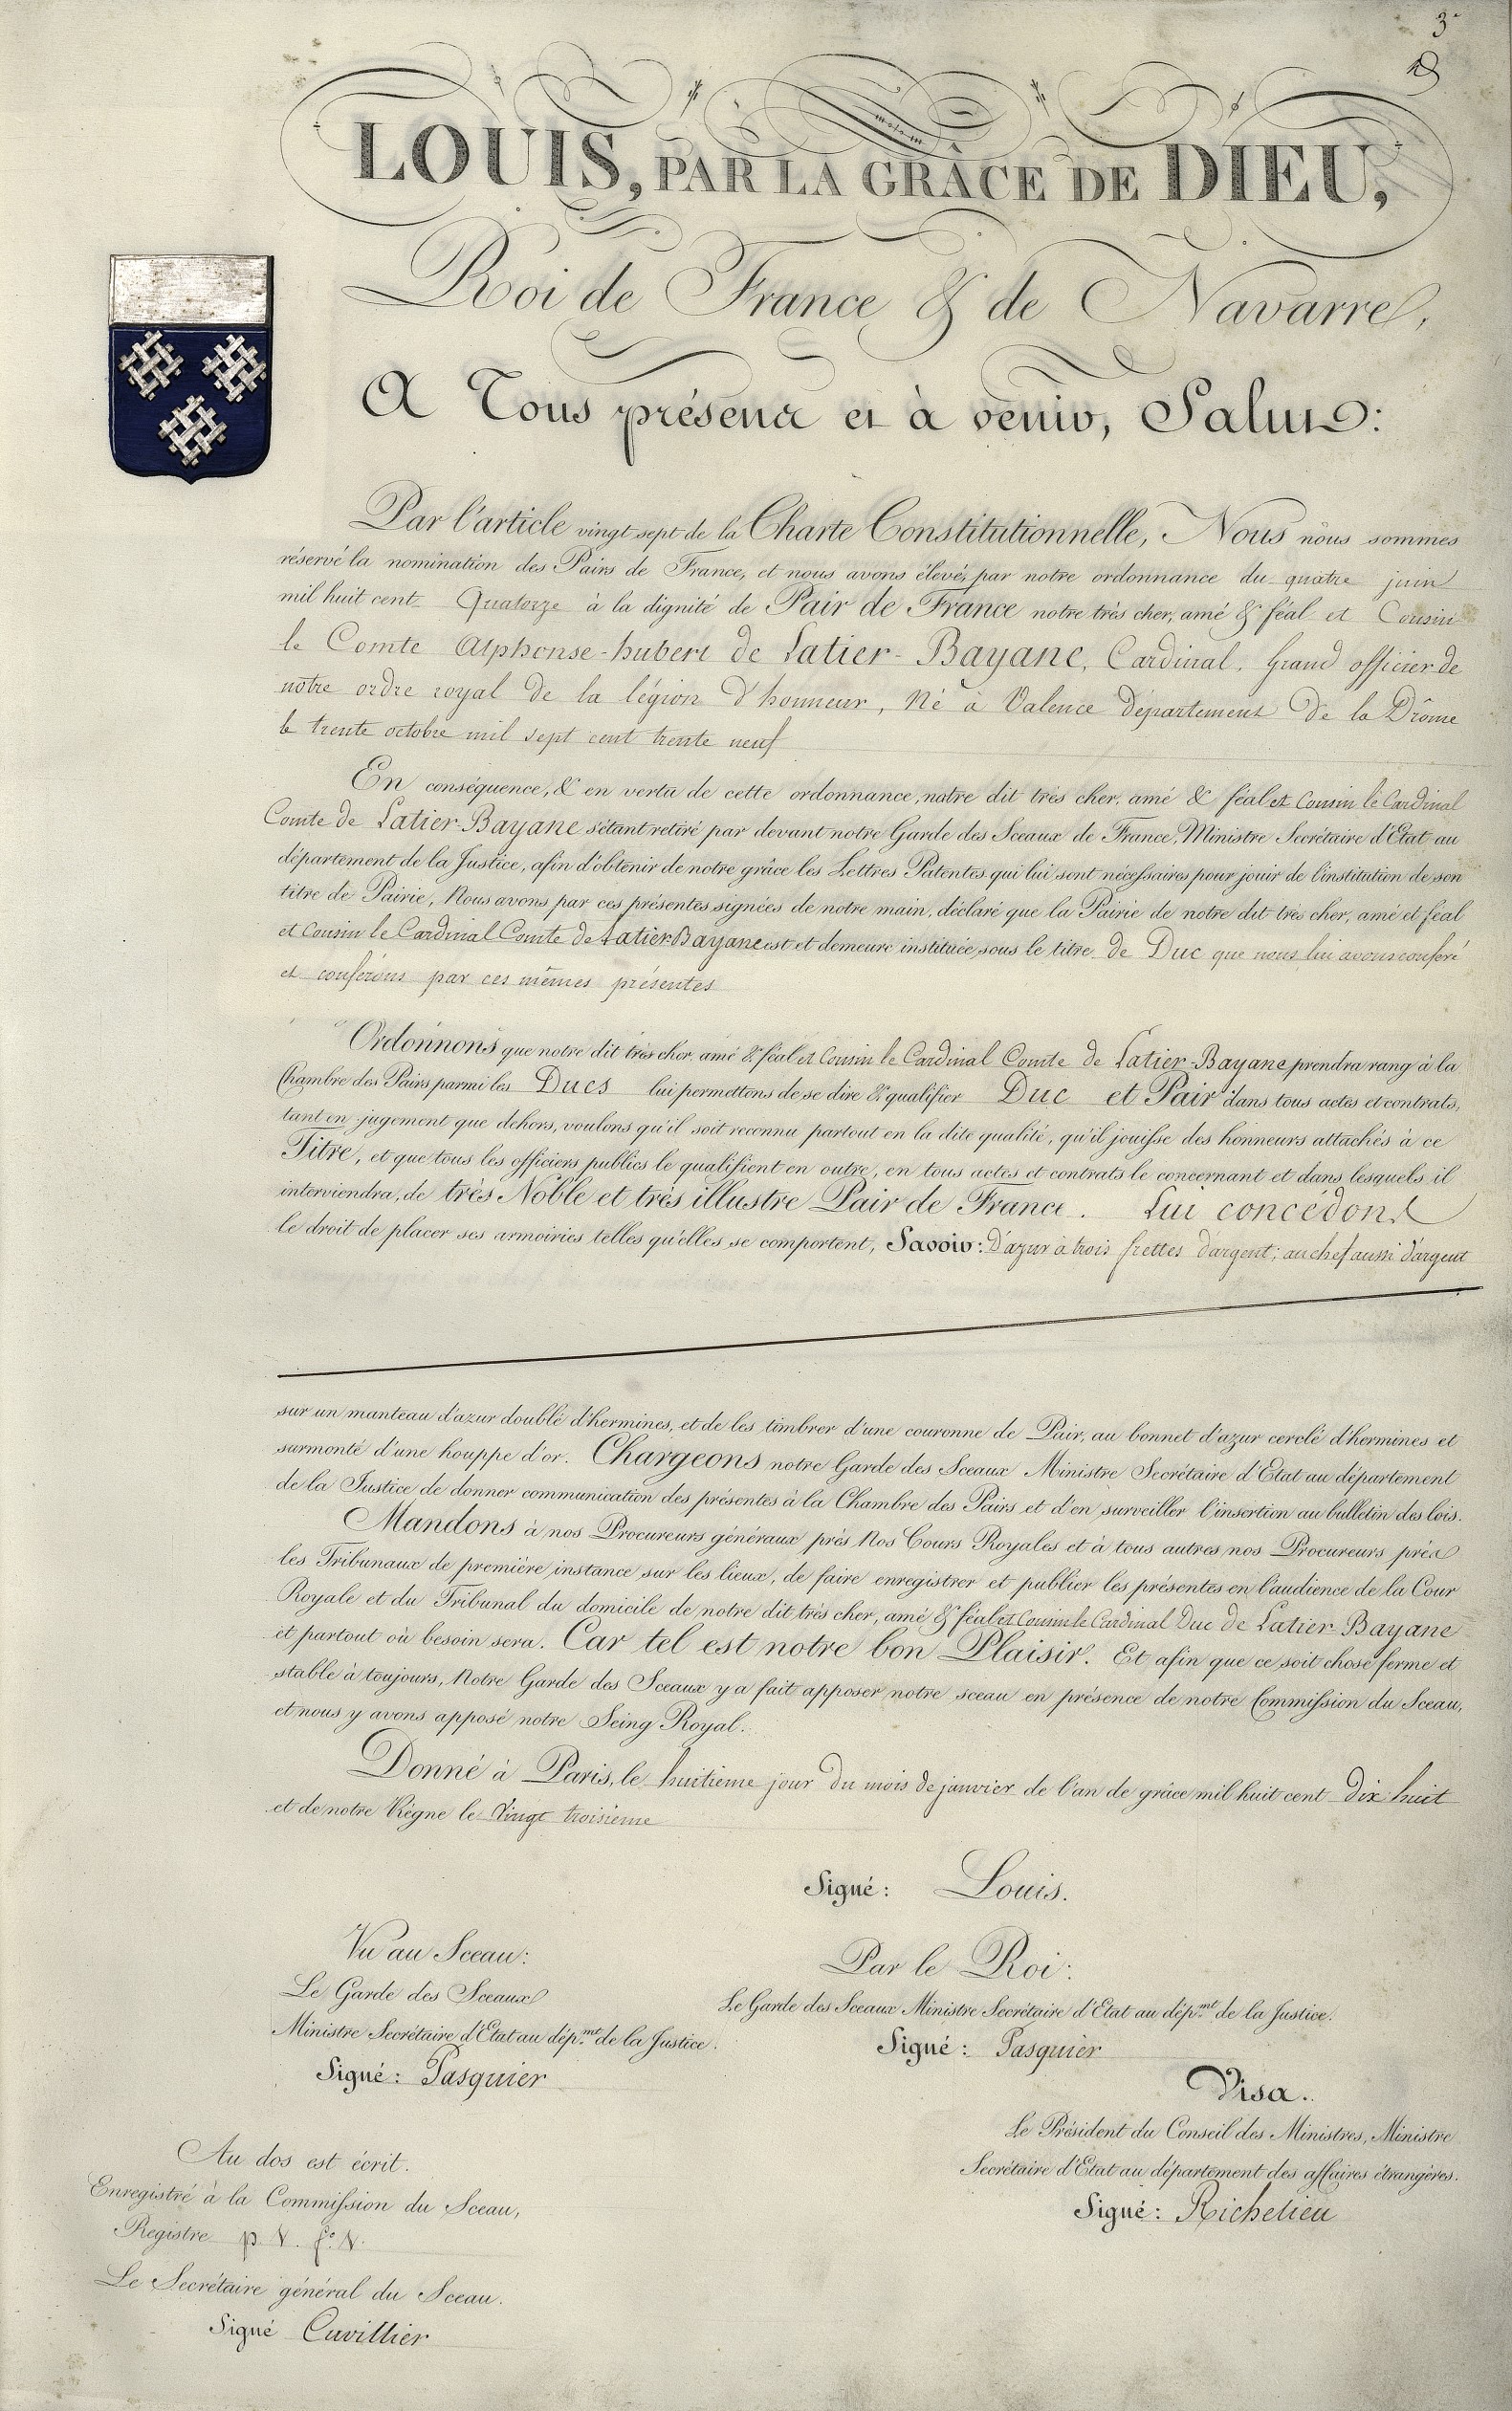 3
LOUIS, PAR LA GRÂCE DE DIEU,
Roi de France & de Navarre,
A Tous présent et à venir, Salut:
Par l'article vingt sept de la Charte Constitutionnelle, Nous nous sommes
réservé la nomination des Pairs de France, et nous avons élevé, par notre ordonnance du quatre juin
mil huit cent Quatorze à la dignité de Pair de France notre très cher, amé & féal et Cousin
le Comte Alphonse-hubert de Latier-Bayane, Cardinal. Grand officier de
notre ordre royal de la légion d'honneur, Né à Valence département de la Drôme
le trente octobre mil sept cent trente neuf
En conséquence, & en vertu de cette ordonnance, notre dit très cher, amé & féal et Cousin le Cardinal
Comte de Latier-Bayane s'étant retiré par devant notre Garde des Sceaux de France, Ministre Secrétaire d'Etat au
département de la Justice, afin d'obtenir de notre grâce les Lettres Patentes qui lui sont nécessaires pour jouir de l'institution de son
titre de Pairie, Nous avons par ces présentes signées de notre main, déclaré que la Pairie de notre dit très cher, amé et féal
et Cousin le Cardinal Comte de Latier-Bayane est et demeure instituée sous le titre de Duc que nous lui avons conféré
et conférons par ces mêmes présentes
Ordonnons que notre dit très cher, amé & féal et Cousin le Cardinal Comte de Latier-Bayane prendra rang à la
Chambre des Pairs parmi les Ducs lui permettons de se dire & qualifier Duc et Pair dans tous actes et contrats,
tant en jugement que dehors, voulons qu'il soit reconnu partout en la dite qualité, qu'il jouisse des honneurs attachés à ce
Titre, et que tous les officiers publics le qualifient en outre, en tous actes et contrats le concernant et dans lesquels il
interviendra, de très Noble et très illustre Pair de France. Lui concédons
le droit de placer ses armoiries telles qu'elles se comportent, Savoir: D'azur à trois frettes d'argent; au chef aussi d'argent
sur un manteau d'azur doublé d'hermines, et de les timbrer d'une couronne de Pair, au bonnet d'azur cerclé d'hermines et
surmonté d'une houppe d'or. Chargeons notre Garde des Sceaux Ministre Secrétaire d'Etat au département
de la Justice de donner communication des présentes à la Chambre des Pairs et d'en surveiller l'insertion au bulletin des lois.
Mandons à nos Procureurs généraux près Nos Cours Royales et à tous autres nos Procureurs près
les Tribunaux de première instance sur les lieux, de faire enregistrer et publier les présentes en l'audience de la Cour
Royale et du Tribunal du domicile de notre dit très cher, amé & féal et Cousin le Cardinal Duc de Latier-Bayane
et partout où besoin sera. Car tel est notre bon Plaisir. Et afin que ce soit chose ferme et
stable à toujours, Notre Garde des Sceaux y a fait apposer notre sceau en présence de notre Commission du Sceau,
et nous y avons apposé notre Seing Royal.
Donné à Paris, le huitième jour du mois de janvier de l'an de grâce mil huit cent dix huit
et de notre Règne le Vingt troisième
Signé: Louis.
Vu au Sceau:
Le Garde des Sceaux
Ministre Secrétaire d'Etat au dép.mt de la Justice.
Signé: Pasquier
Par le Roi:
Le Garde des Sceaux Ministre Secrétaire d'Etat au dép.mt de la Justice.
Signé: Pasquier
Visa.
Le Président du Conseil des Ministres, Ministre
Secrétaire d'Etat au département des affaires étrangères.
Signé: Richelieu
Au dos est écrit.
Enregistré à la Commission du Sceau,
Registre p V. f.o V.
Le Secrétaire général du Sceau.
Signé Cuvillier